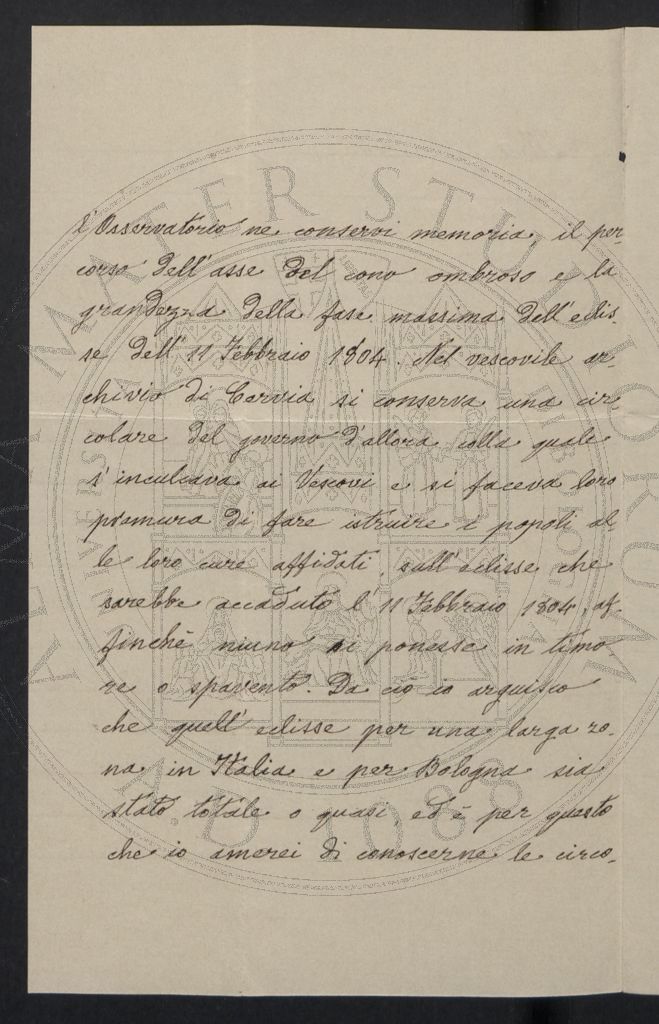 l'Osservatorio ne conservi memoria, il per-
corso dell'asse del cono ombroso e la
grandezza della fase massima dell'eclis-
se dell'11 Febbraio 1804. Nel vescovile ar-
chivio di Cervia si conserva una cir-
colare del governo d'allora colla quale
s'inculcava ai Vescovi e si faceva loro
premura di fare istruire i popoli al-
le loro cure affidati, sull'eclisse che
sarebbe accaduto l'11 Febbraio 1804, af-
finchè niuno si ponesse in timo-
re o spavento. Da ciò io arguisco
che quell'eclisse per una larga zo-
na in Italia e per Bologna sia
stato totale o quasi ed è per questo
che io amerei di conoscerne le circo-
ALMA MATER STUDIORUM
A.D. 1088